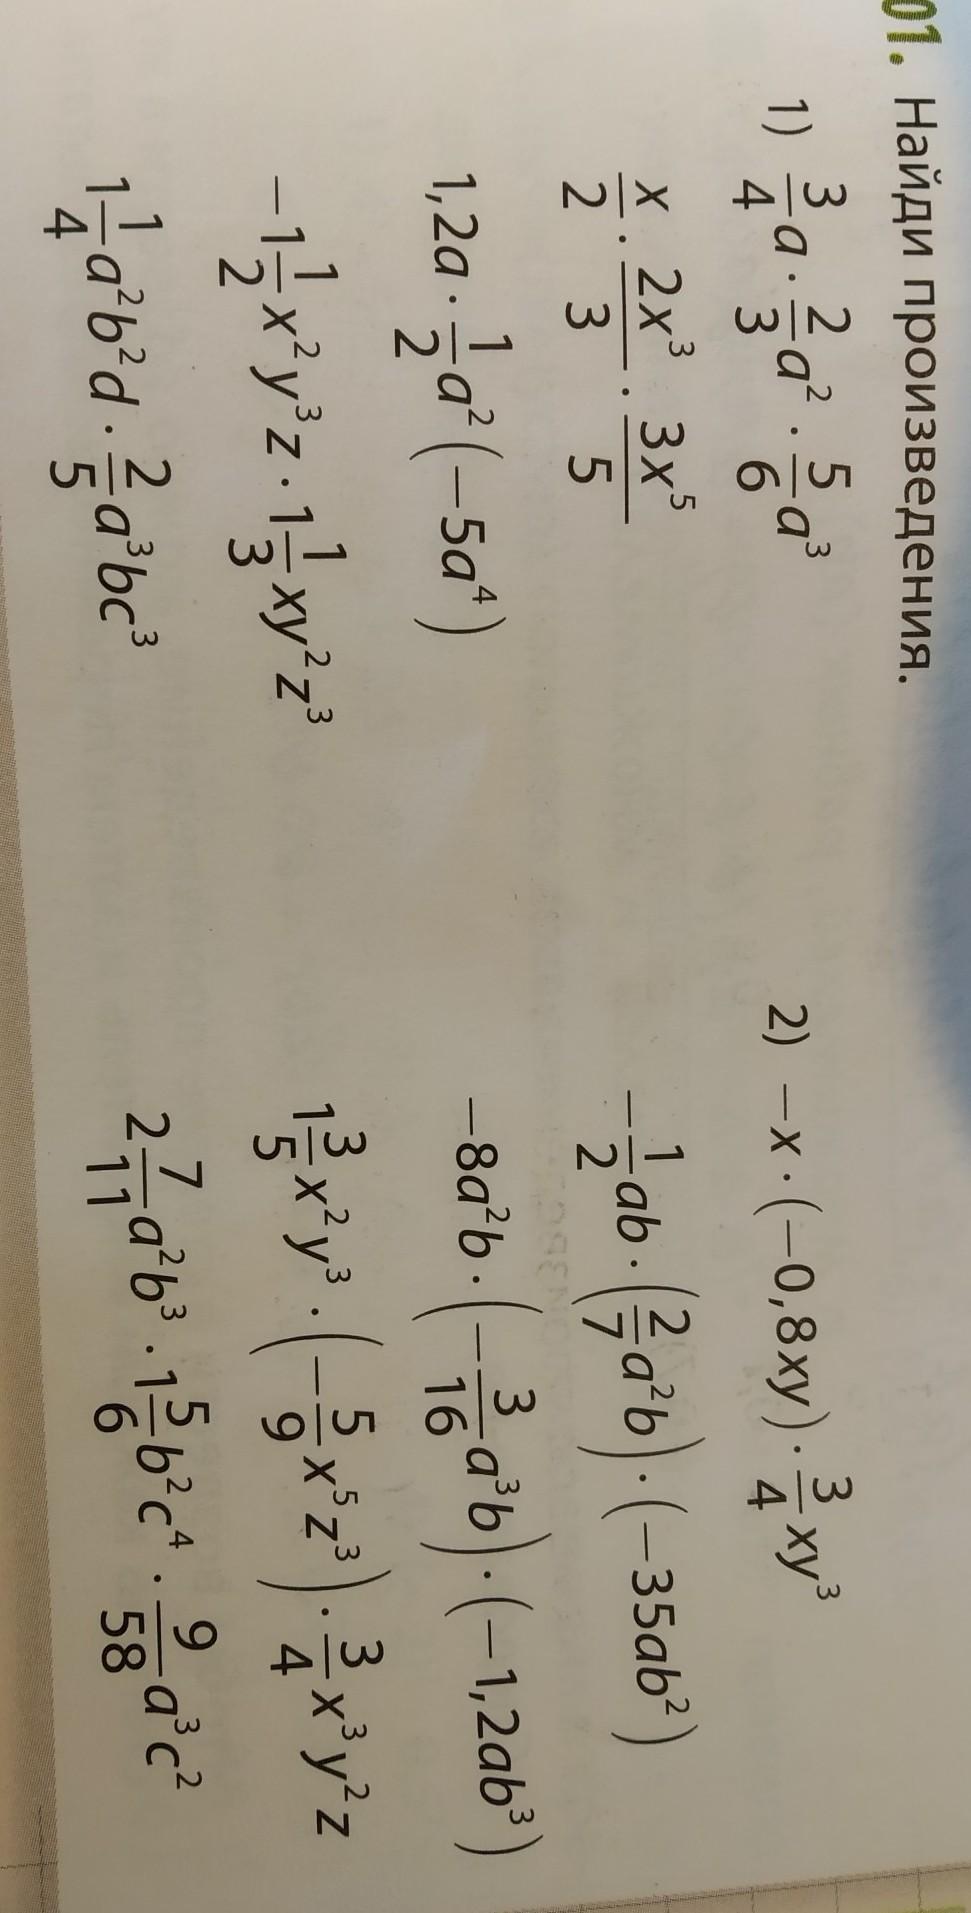 01. Найди произведения.
1) 3/4 a · 2/3 a² · 5/6 a³
x/2 · 2x³/3 · 3x⁵/5
1,2a · 1/2 a² (−5a⁴)
−1 1/2 x² y³ z · 1 1/3 xy² z³
1 1/4 a²b²d · 2/5 a³bc³
2) −x · (−0,8xy) · 3/4 xy³
−1/2 ab · (2/7 a²b) · (−35ab²)
−8a²b · (−3/16 a³b) · (−1,2ab³)
1 3/5 x² y³ · (−5/9 x⁵z³) · 3/4 x³y²z
2 7/11 a²b³ · 1 5/6 b²c⁴ · 9/58 a³c²